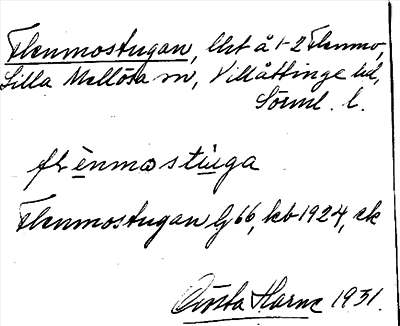 Flenmostugan, lht å 1-2 Flenmo,
Lilla Mellösa sn, Villåttinge hd,
Sörml. l.
flènmostùga
Flenmostugan lg 66, kb 1924, ek
Gösta Harne 1931.